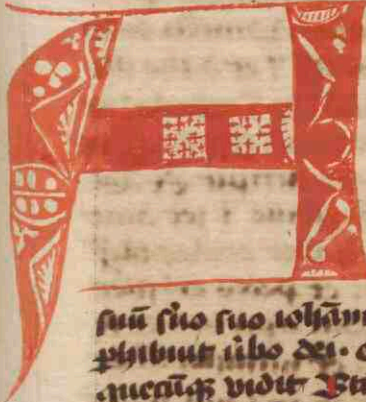 A
suū ſ̄uo ſuo ioh̄an
phibuit ūbo dei · 
quecūqꝫ vidit